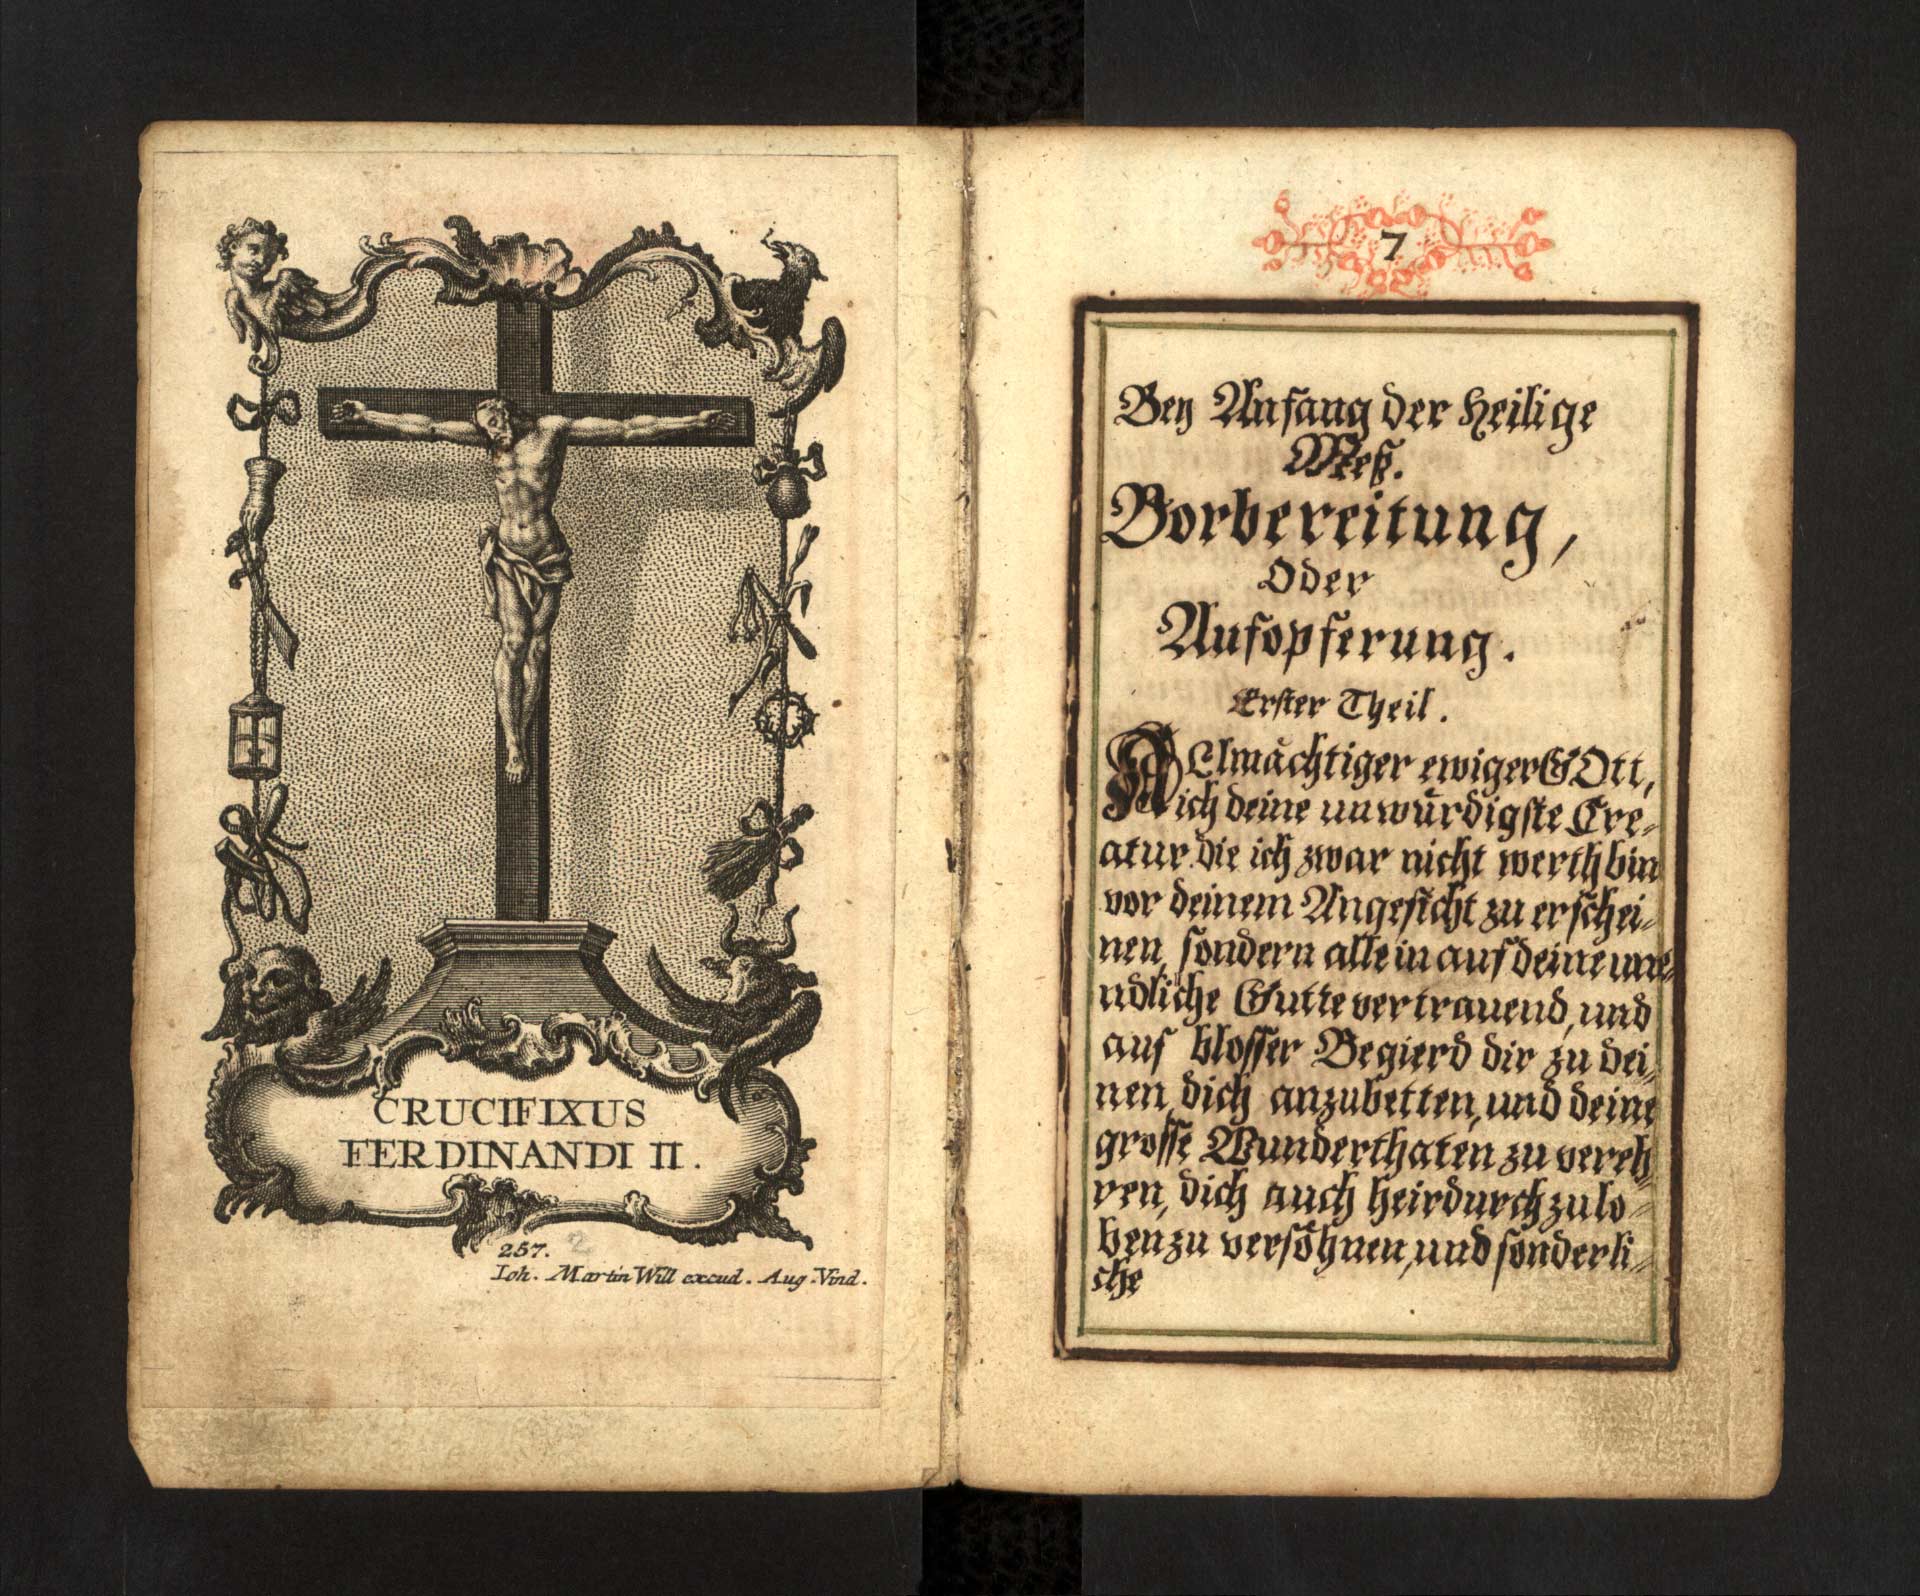 CRUCIFIXUS
FERDINANDI II.
257. 2
Ioh. Martin Will excud. Aug. Vind.
7
Bey Anfang der Heilige
Meß.
Vorbereitung,
Oder
Aufopferung.
Erster Theil.
ALlmächtiger ewiger GOtt,
ich deine unwürdigste Cre=
atur die ich zwar nicht werth bin
vor deinem Angesicht zu erschei=
nen, sondern allein auf deine une=
ndliche Gutte vertrauend, und
aus blosser Begierd dir zu dei=
nen, dich anzubetten, und deine
grosse Wunderthaten zu vereh=
ren, dich auch heirdurch zu lo=
ben zu versöhnen, und sonderli=
che